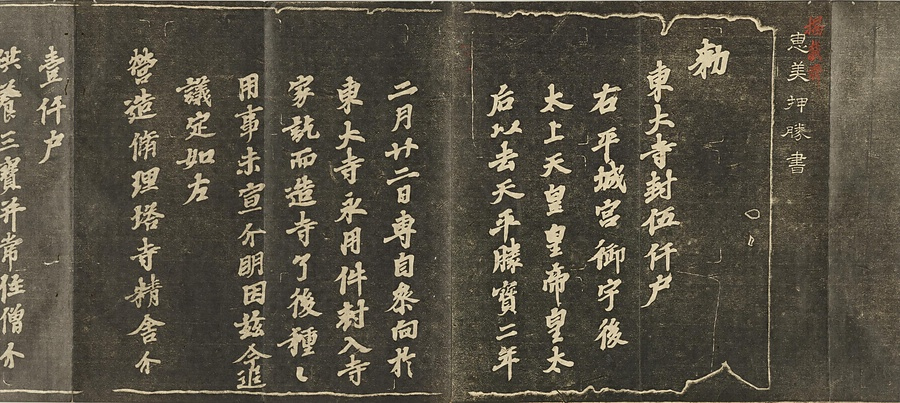 惠美押勝書
勅
東大寺封伍仟戶
右平城宮御宇後
太上天皇皇帝皇太
后以去天平勝寶二年
二月廿二日専自参向於
東大寺永用件封入寺
家訖而造寺了後種〻
用事未宣分明因茲今追
議定如左
營造修理塔寺精舍分
壹仟戶
供養三寶并常住僧分